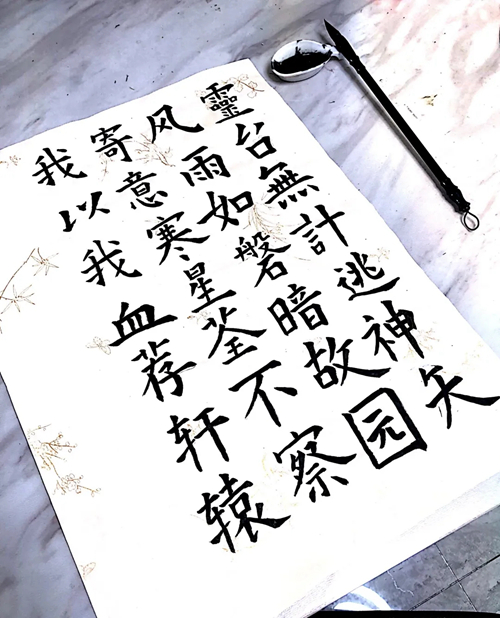 靈台無計逃神矢
风雨如磐暗故园
寄意寒星荃不察
我以我血荐轩辕